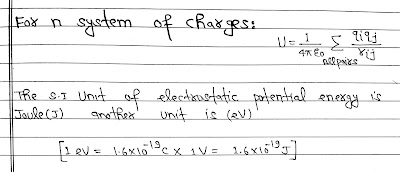 For n system of charges:
U = 1/4πε₀ Σ qᵢqⱼ/rᵢⱼ
all pairs
The S.I Unit of electrostatic potential energy is
Joule(J) another unit is (eV)
[1 eV = 1.6×10⁻¹⁹C × 1V = 1.6×10⁻¹⁹J]